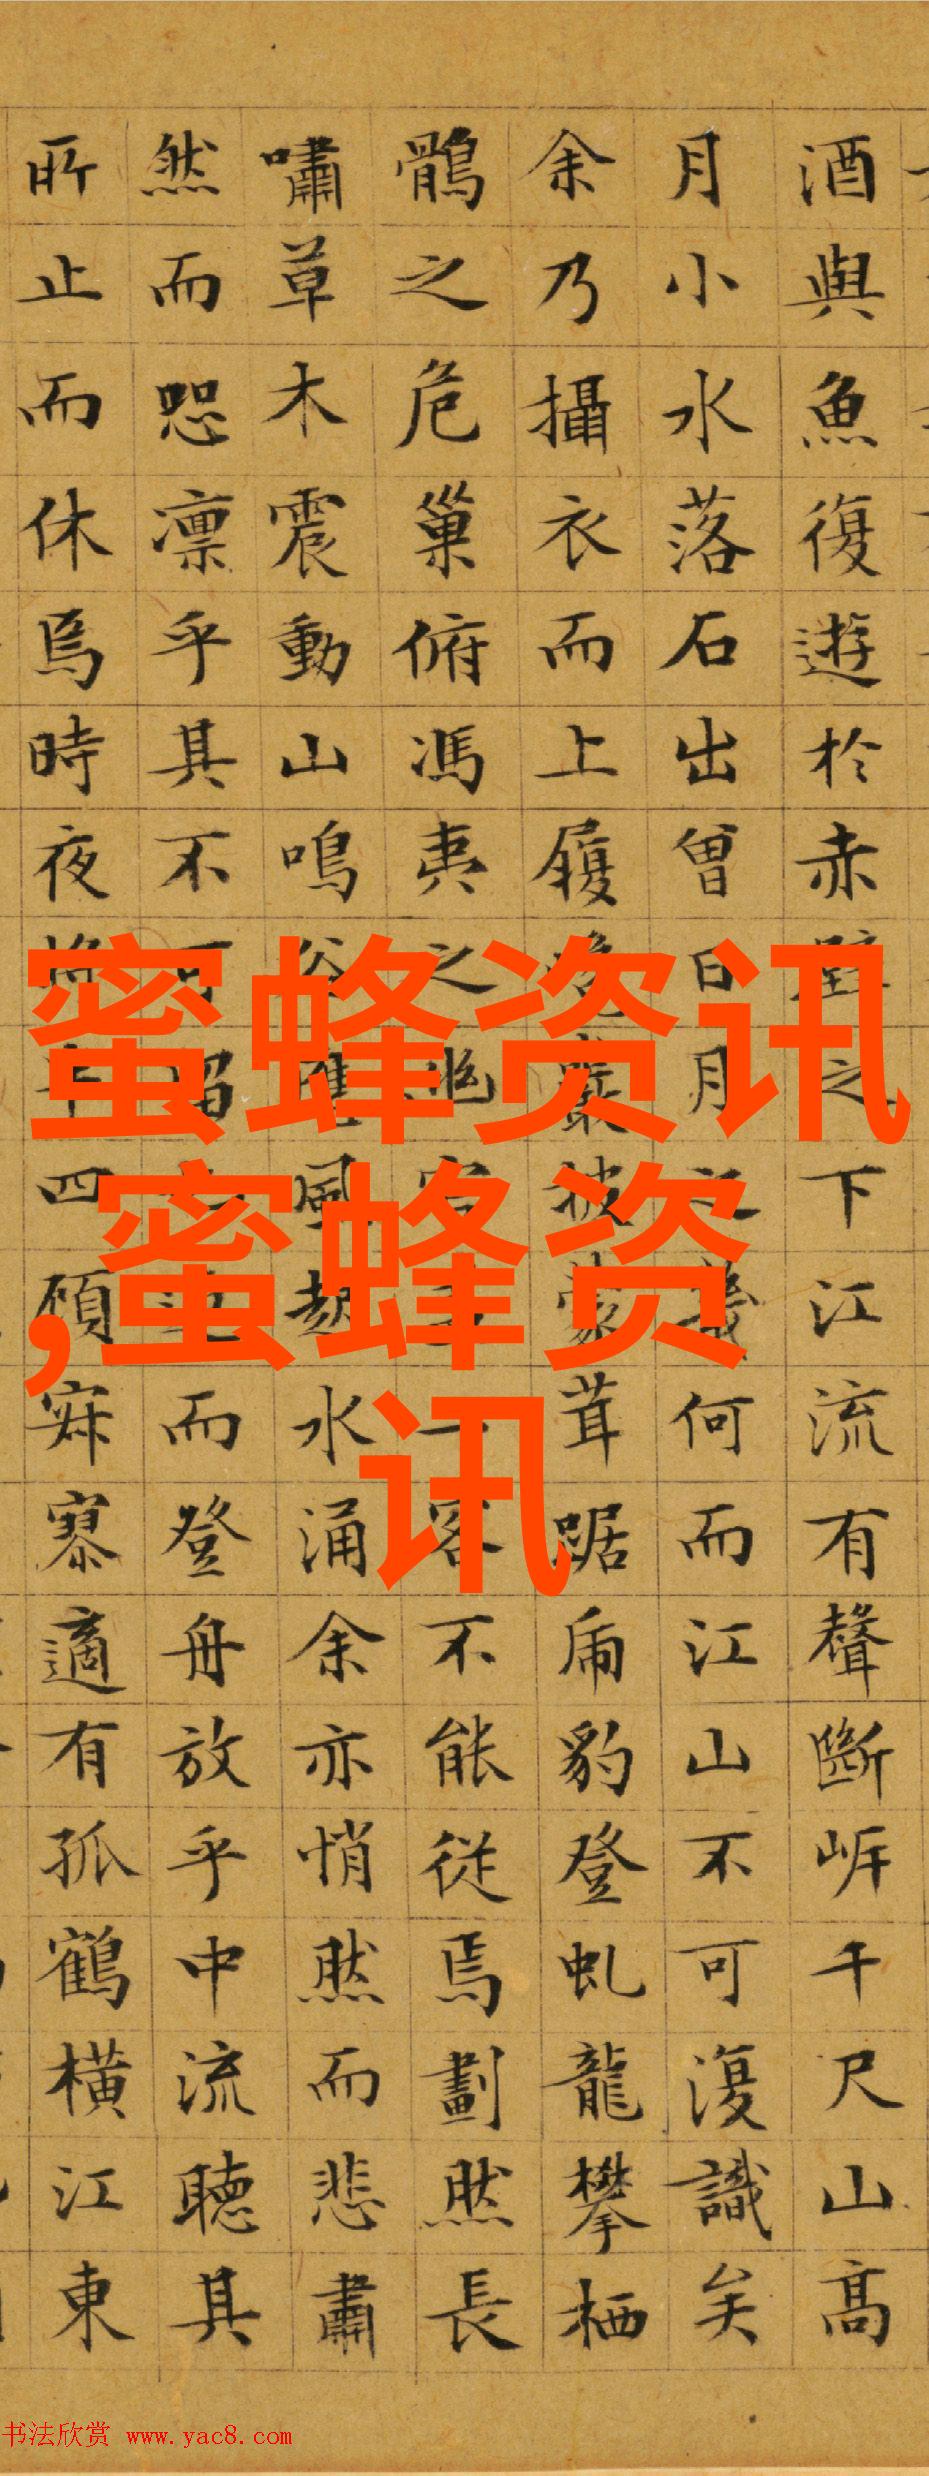 酒與魚復遊於赤壁之下江流有聲斷岸千尺山高
月小水落石出曾日月之幾何而江山不可復識矣
余乃攝衣而上履巉巖披蒙茸踞虎豹登虬龍攀栖
鶻之危巢俯馮夷之幽宮蓋二客不能從焉劃然長
嘯草木震動山鳴谷應風起水涌余亦悄然而悲肅
然而恐凛乎其不可留也反而登舟放乎中流聽其
所止而休焉時夜將半四顧寂寥適有孤鶴橫江東
蜜蜂资讯
,蜜蜂资
讯
书法欣赏 www.yac8.com